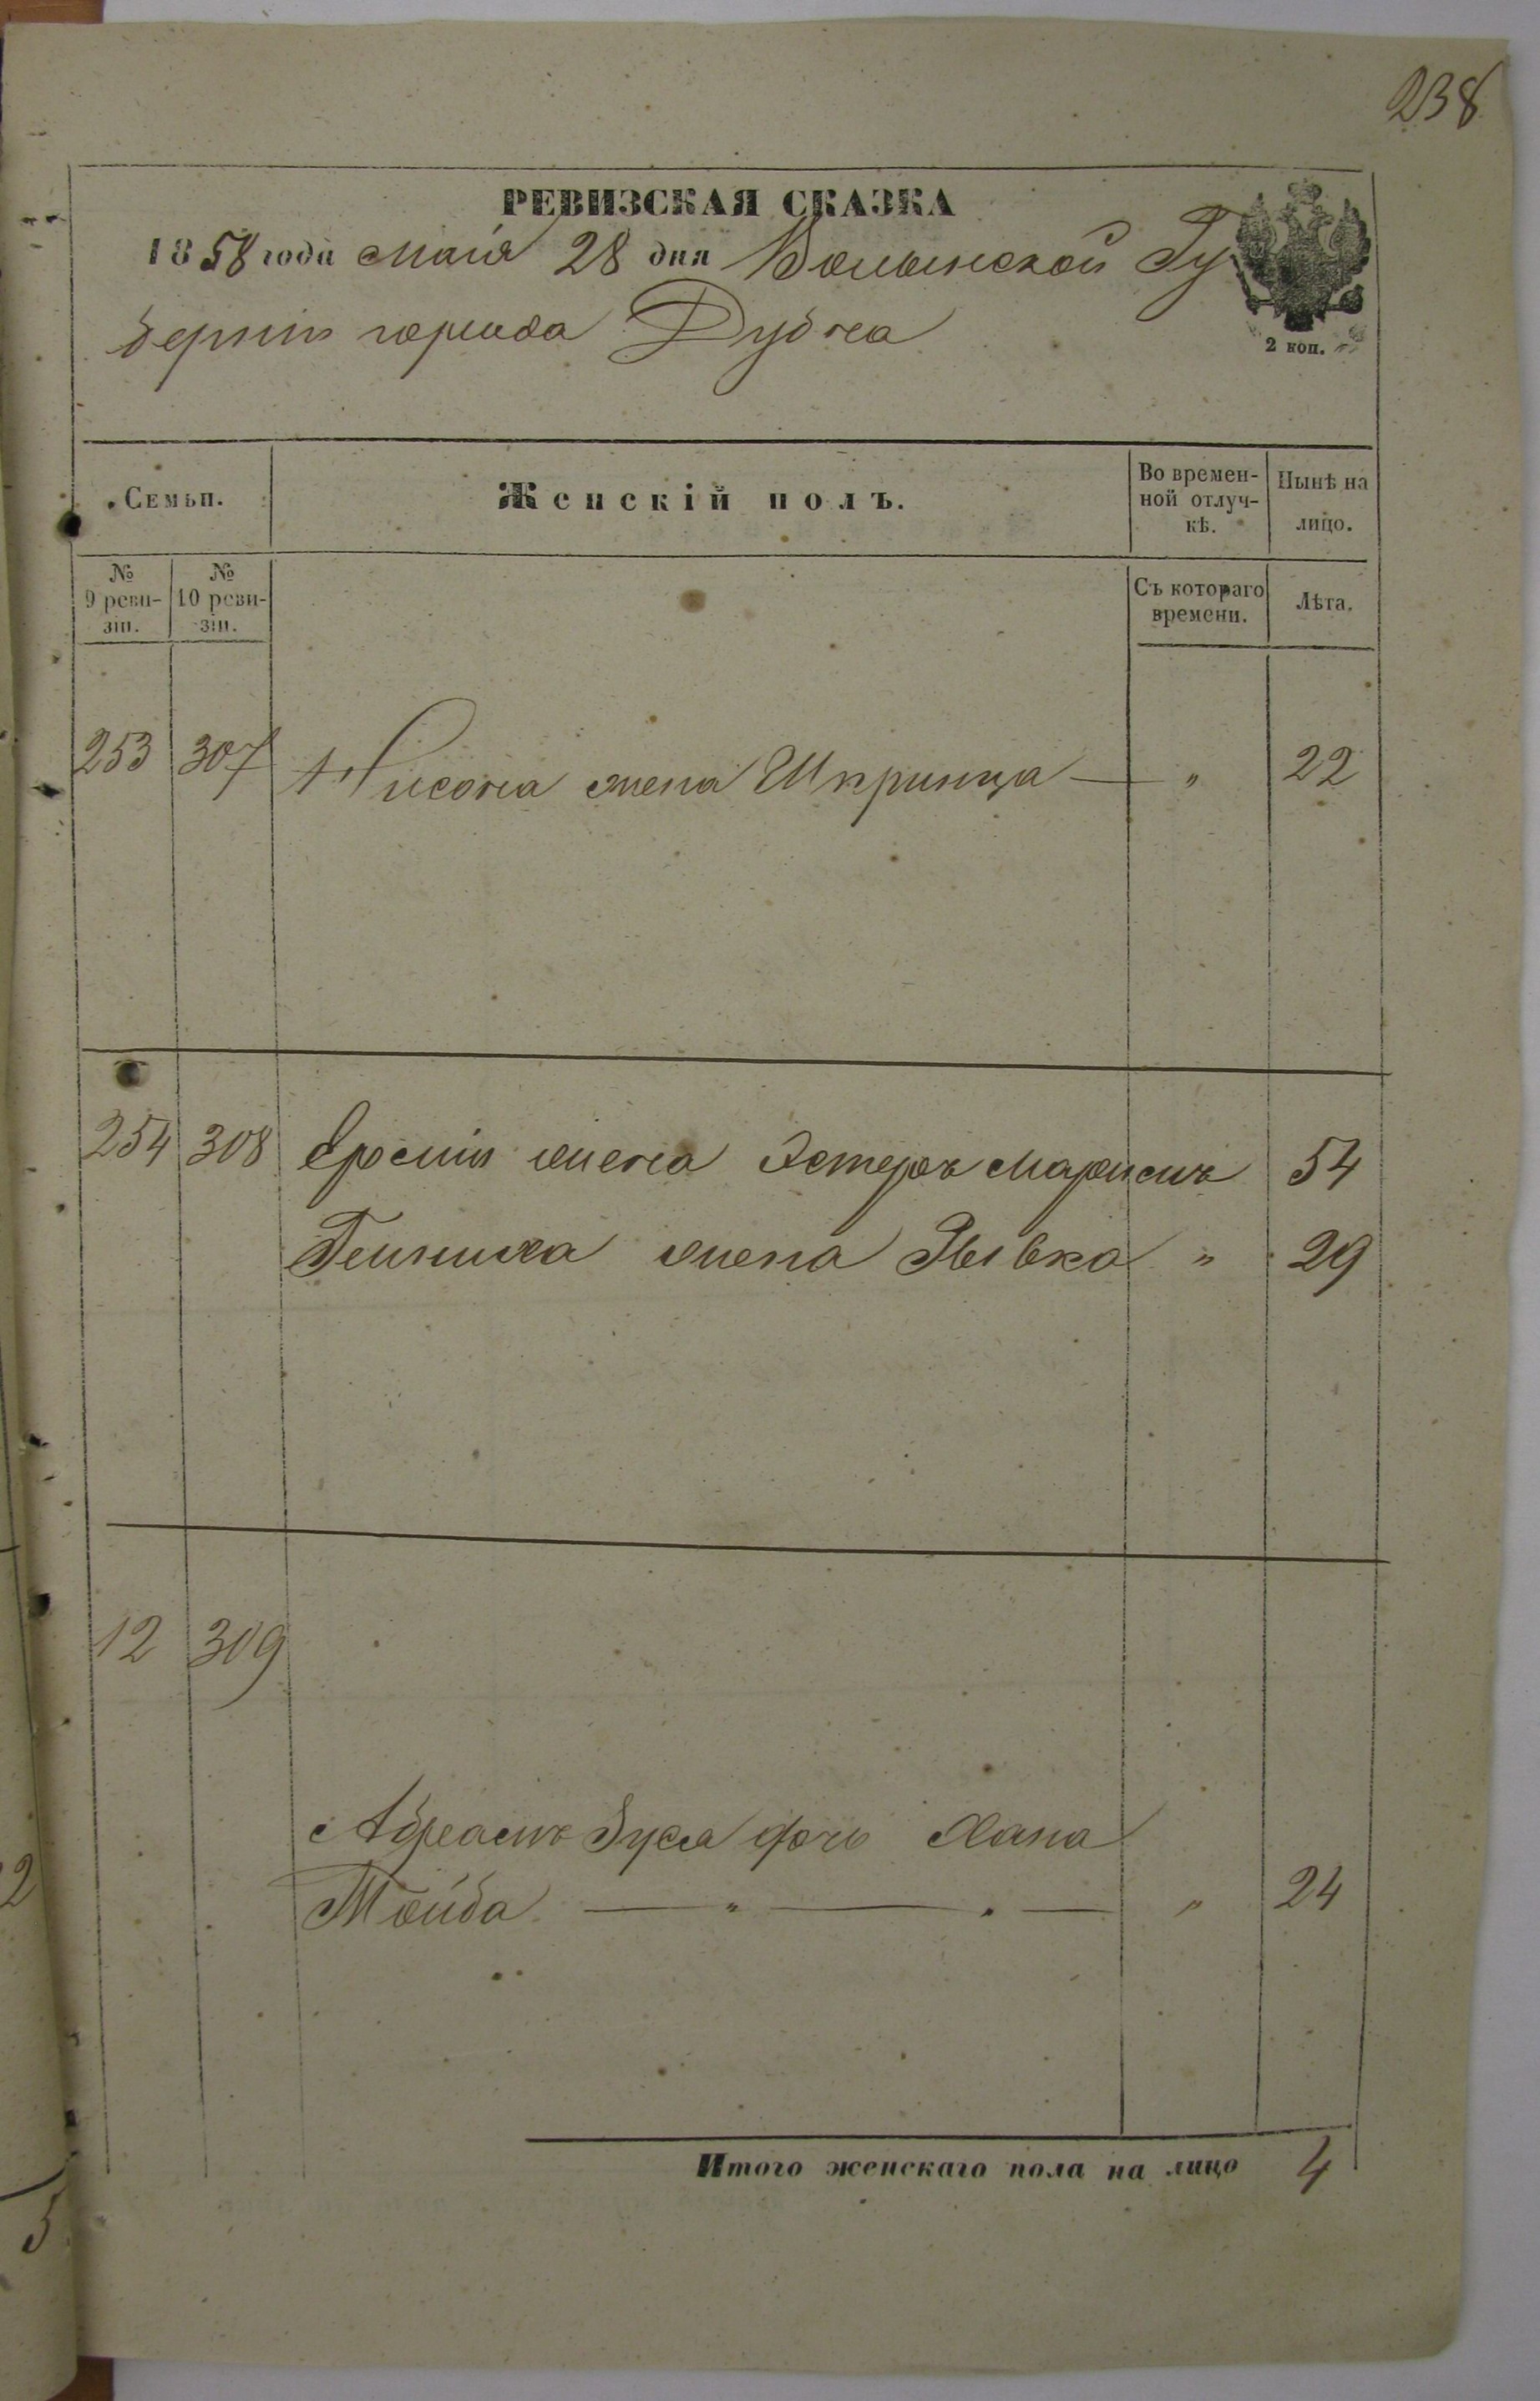 238
РЕВИЗСКАЯ СКАЗКА
1858 года Маія 28 дня Волынской Гу
берніи города Дубна
2 коп.
Семьи.
Женскій полъ.
Во времен-
ной отлуч-
кѣ.
Нынѣ на
лицо.
№
9 реви-
зіи.
№
10 реви-
зіи.
Съ котораго
времени.
Лѣта.
253 307 жена Шпринца — " 22
254 308 жена Эстеръ Марьимъ 54
жена Рывка " 29
12 309
Абрамъ Зуся дочь Хана
Тойба — " — " — " 24
Итого женскаго пола на лицо 4
2
5